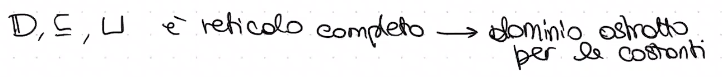 𝔻, ⊑, ⊔ è reticolo completo → dominio astratto
per le costanti